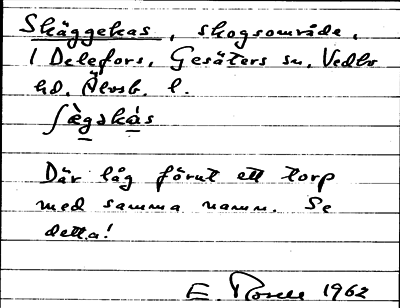 Skäggekas, skogsområde,
i Delefors, Gesäters sn, Vedbo
hd, Älvsb. l.
ʃæ̀gəkás
Där låg förut ett torp
med samma namn. Se
detta!
E. Rosell 1962